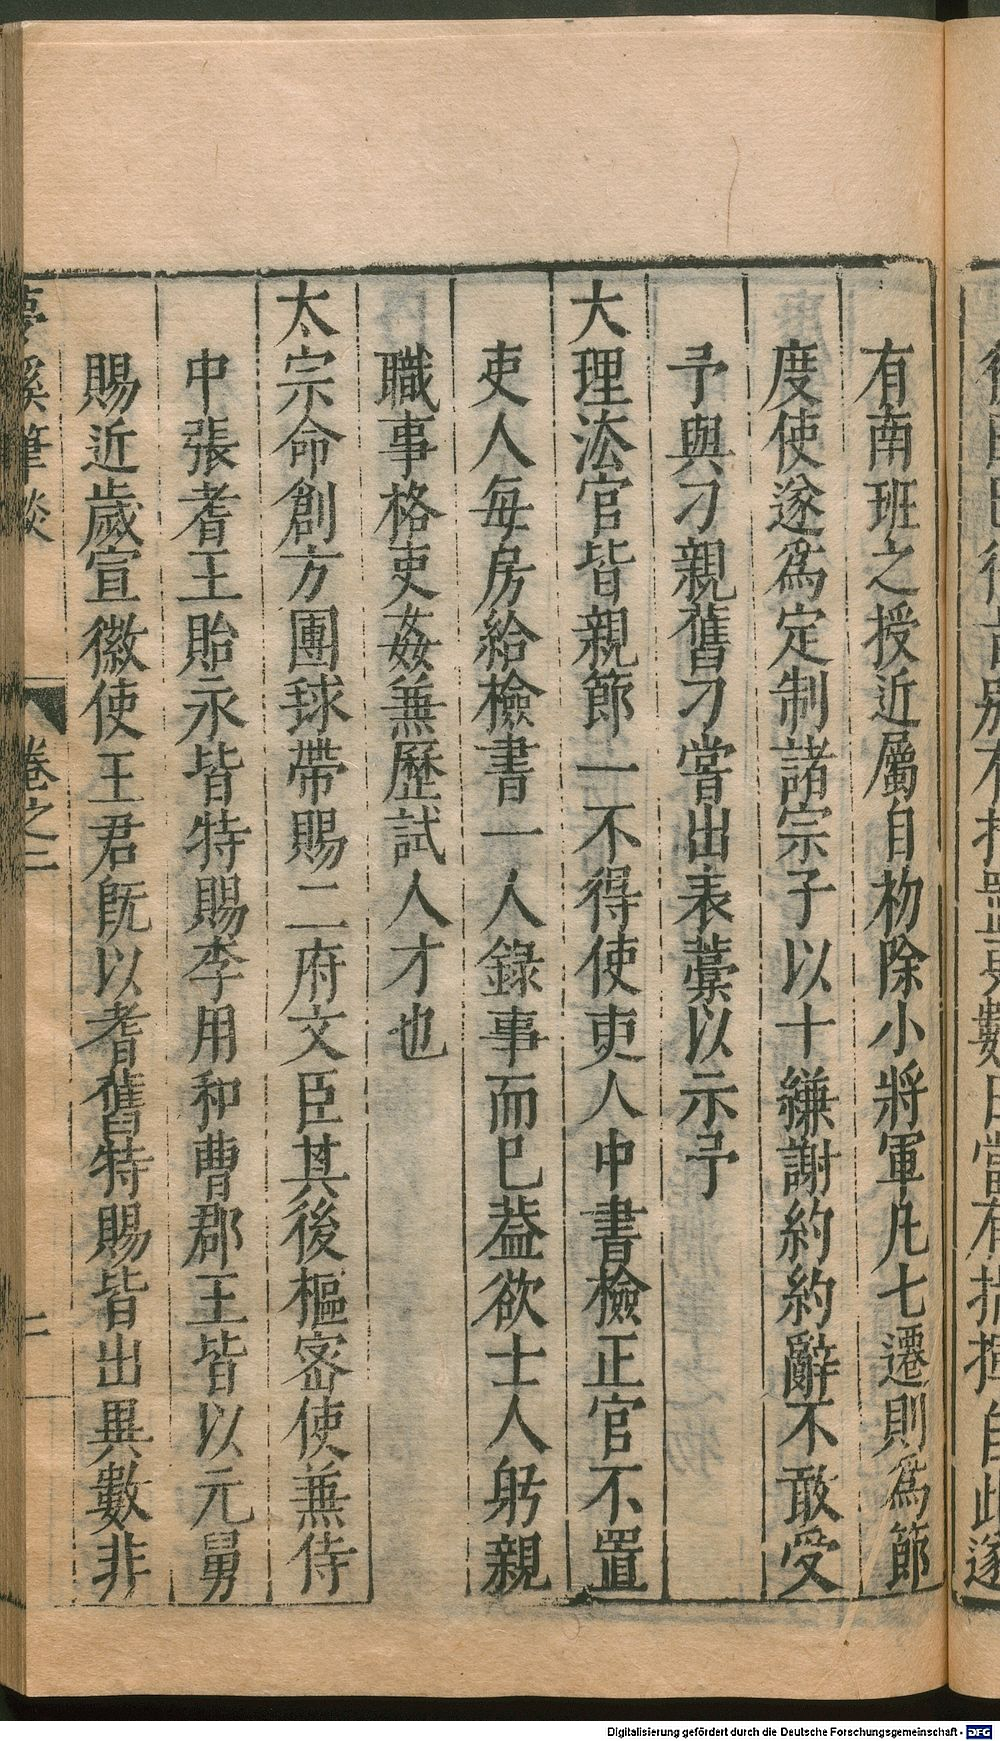 有南班之授近屬自初除小將軍凡七遷則爲節
度使遂爲定制諸宗子以十縑謝約約辭不敢受
予與刁親舊刁嘗出表藁以示予
大理法官皆親節一不得使吏人中書檢正官不置
吏人每房給檢書一人錄事而巳葢欲士人躬親
職事格吏姦兼歷試人才也
太宗命創方團球帶賜二府文臣其後樞密使兼侍
中張耆王貽永皆特賜李用和曹郡王皆以元舅
賜近歲宣徽使王君旣以耆舊特賜皆出異數非
夢溪筆談
卷之二
二
Digitalisierung gefördert durch die Deutsche Forschungsgemeinschaft - DFG